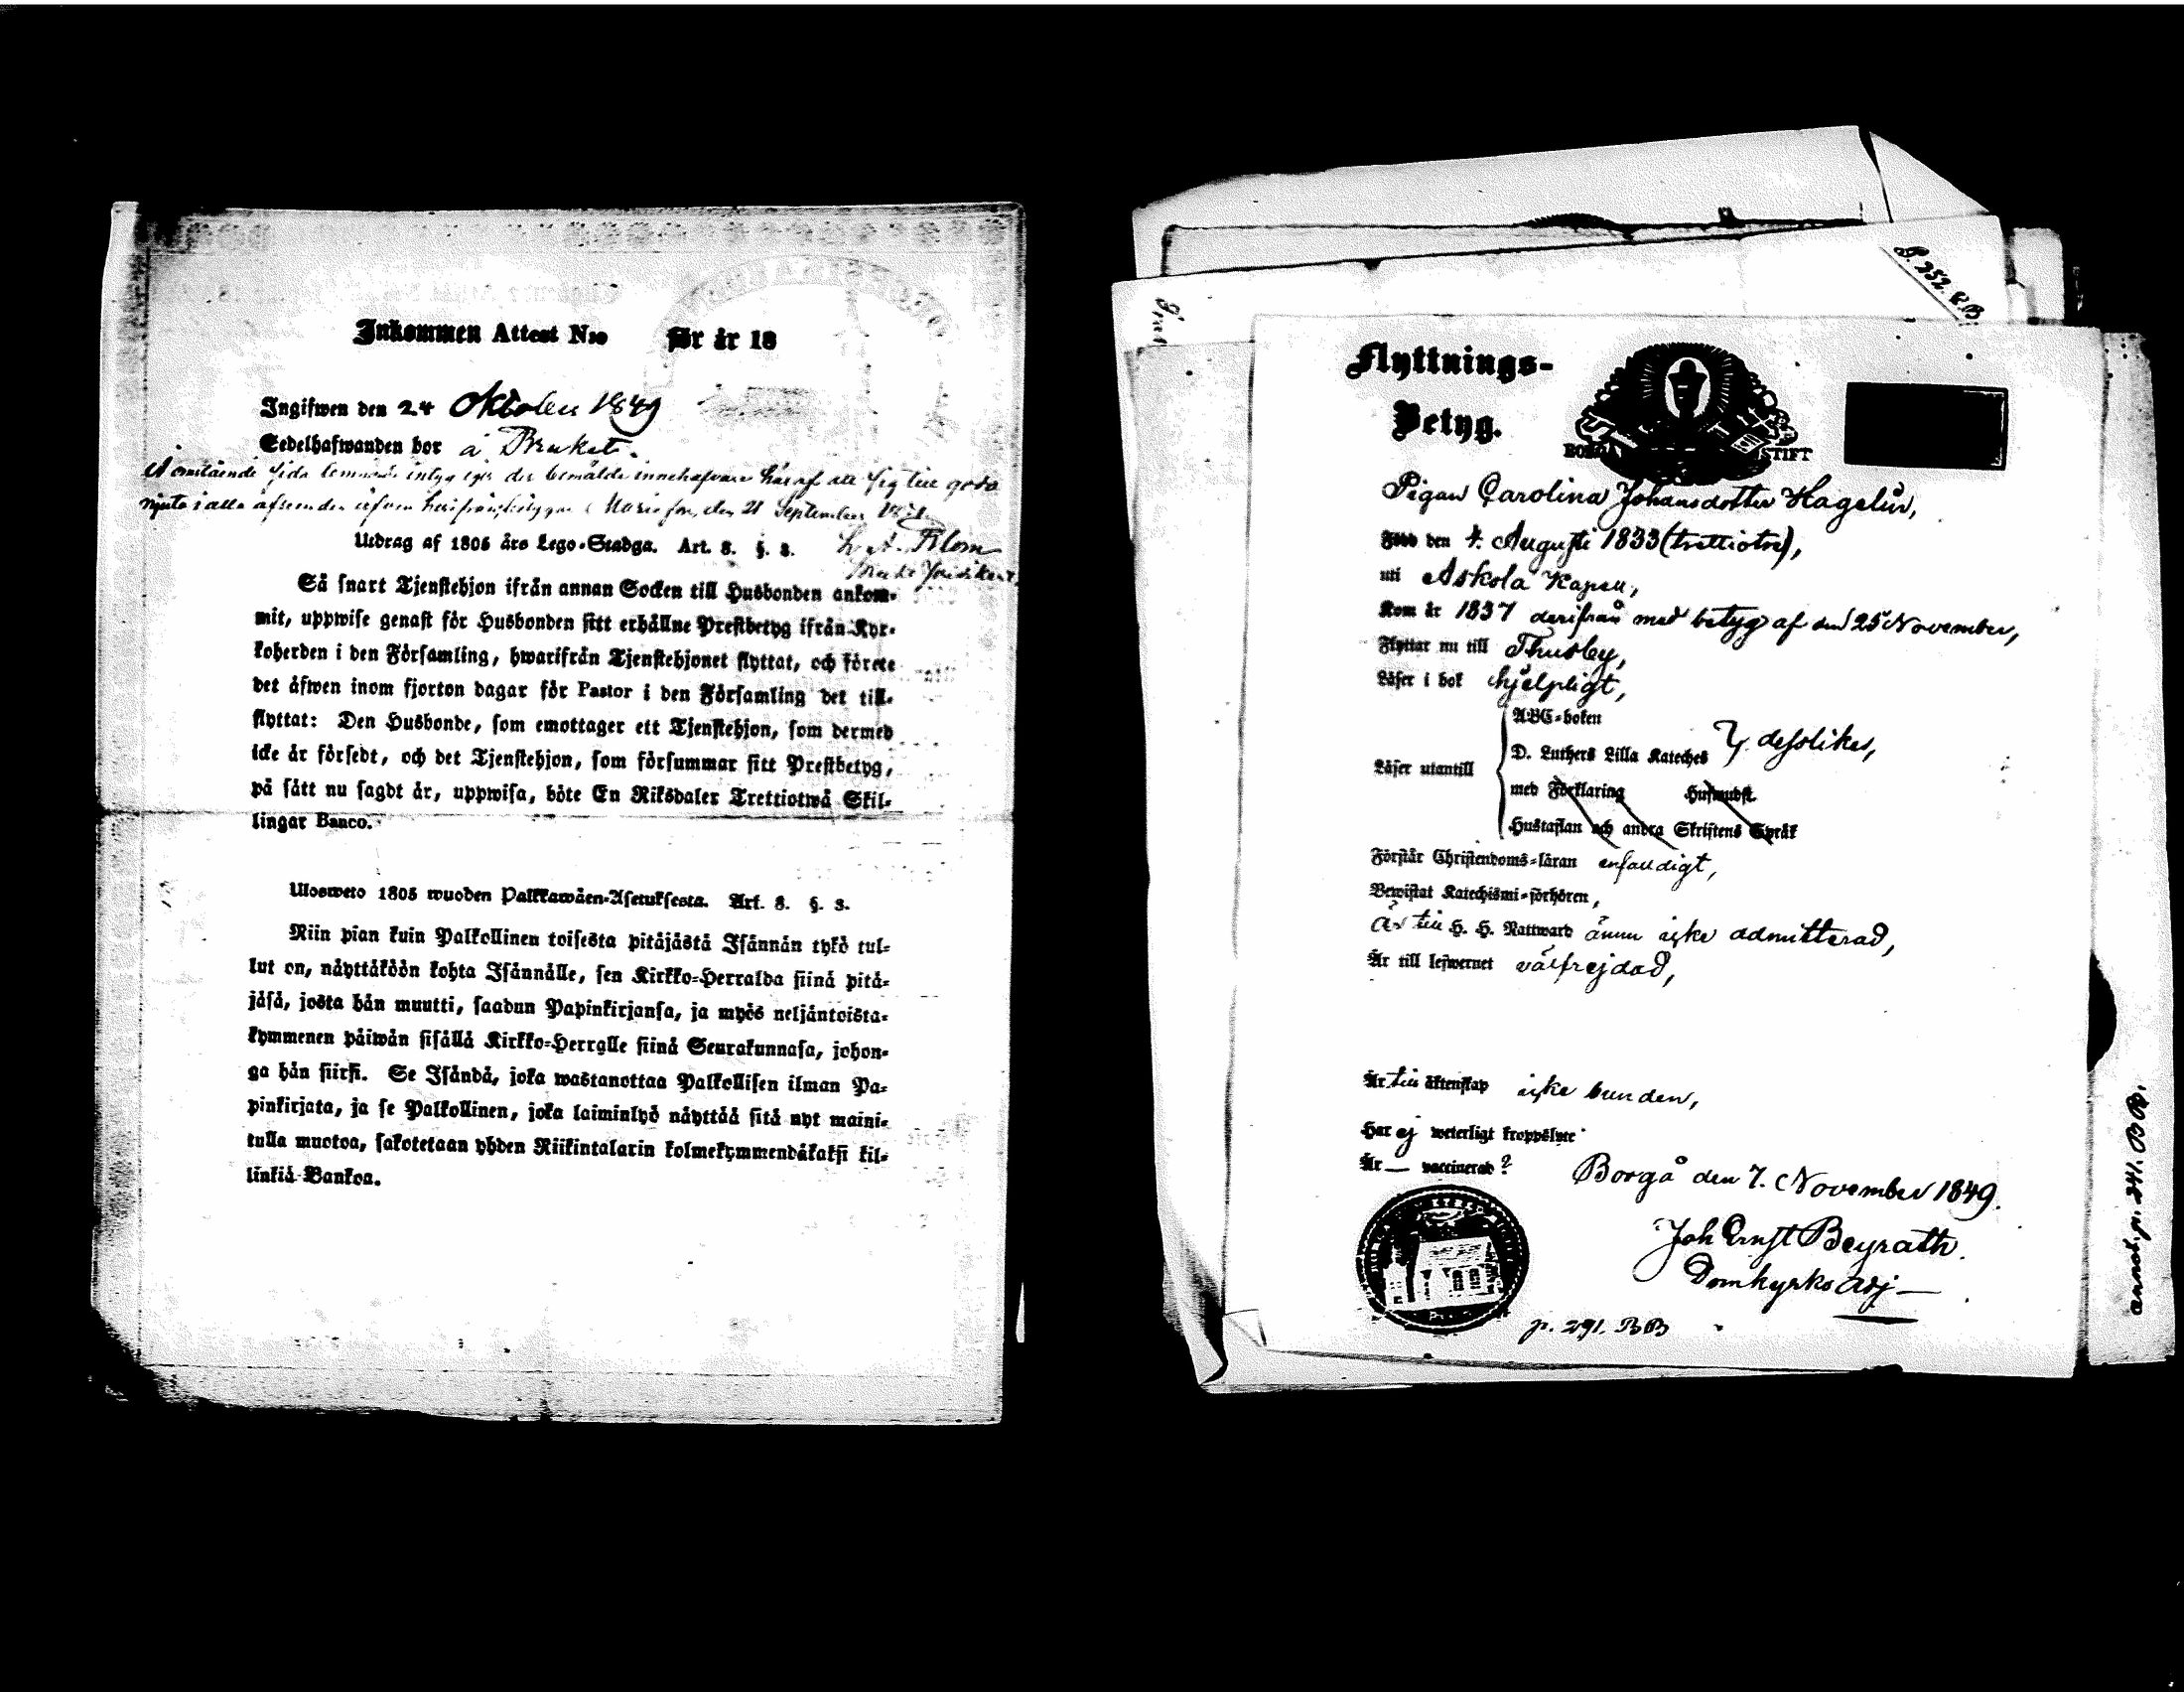 Inkommen Attest N:o för år 18
Ingifwen den 24 Oktober 1849
Sedelhafwanden bor å Bruket.
omstående sida lemnade intyg innehafvare häraf att sig till godo
njuta i alla afseenden den 21 September
Utdrag af 1805 års Lego-Stadga. Art. 8. §. 3.
Blom
Så snart Tjenstehjon ifrån annan Socken till Husbonden ankom-
mit, uppwise genast för Husbonden sitt erhållne Prestbetyg ifrån Kyr-
koherden i den Församling, hwarifrån Tjenstehjonet flyttat, och förete
det åfwen inom fjorton dagar för Pastor i den Församling det till-
flyttat: Den Husbonde, som emottager ett Tjenstehjon, som dermed
icke år försedt, och det Tjenstehjon, som försummar sitt Prestbetyg,
på sått nu sagdt år, uppwisa, böte En Riksdaler Trettiotwå Skil-
lingar Banco.
Ulosweto 1805 wuoden Palkkawäen-Asetuksesta. Art. 8. §. 3.
Niin pian kuin Palkollinen toisesta pitåjåstå Isånnån tykö tul-
lut on, nåyttåköön kohta Isånnålle, sen Kirkko-Herralda siinå pitå-
jåså, josta hån muutti, saadun Papinkirjansa, ja myös neljåntoista-
kymmenen påiwån sisållå Kirkko-Herralle siinå Seurakunnasa, johon-
ga hån siirsi. Se Isåndå, joka wastanottaa Palkollisen ilman Pa-
pinkirjata, ja se Palkollinen, joka laiminlyö nåyttåå sitå nyt maini-
tulla muotoa, sakotetaan yhden Riikintalarin kolmekymmendåkaksi kil-
linkiå Bankoa.
P. 252. B.B
Flyttnings-
Betyg.
BORGÅ STIFT
Pigan Carolina Johansdotter Hagelin,
Född den 4. Augusti 1833 (trettiotre),
uti Askola Kapell,
Kom år 1837 derifrån med betyg af den 25 November,
Flyttar nu till Thusby,
Läser i bok hjelpligt,
ABC-boken
D. Luthers Lilla Kateches dessliker,
Läser utantill
med Förklaring Huswudst.
Hustaflan och andra Skriftens Språk
Förstår Christendoms-läran enfaldigt,
Bewistat Katechismi-förhören,
Är till H. H. Nattward ännu icke admitterad,
Är till lefwernet välfrejdad,
Är till äktenskap icke bunden,
Har ej weterligt kroppslyte
Är — vaccinerad?
Borgå den 7. November 1849.
Joh Ernst Beyrath.
Domkyrko Adj —
p. 291. BB
annot. p. 241. BB.